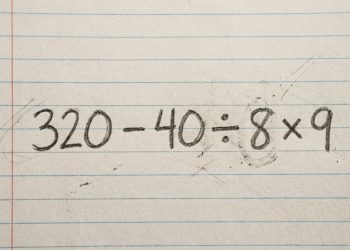 320 − 40 ÷ 8 × 9